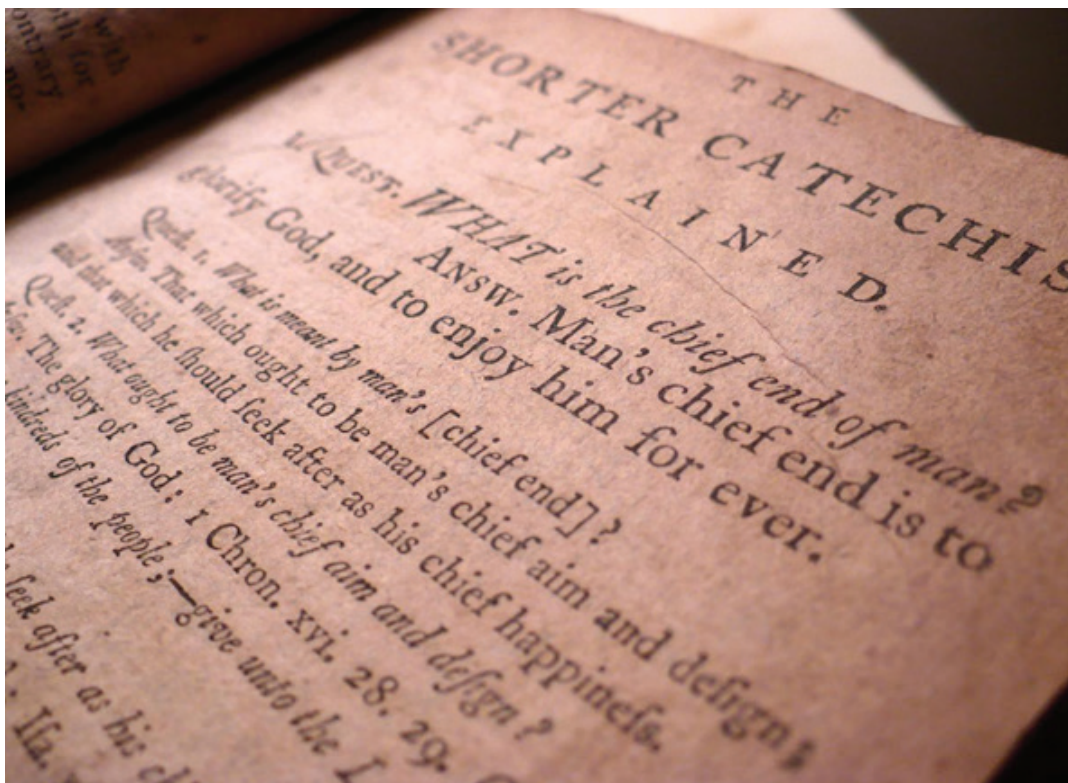 with
oth for
ontrary
no-
THE
SHORTER CATECHIS
EXPLAINED.
1. QUEST. WHAT is the chief end of man?
ANSW. Man's chief end is to
glorify God, and to enjoy him for ever.
Queſt. 1. What is meant by man's [chief end]?
Anſw. That which ought to be man's chief aim and deſign;
and that which he ſhould ſeek after as his chief happineſs.
Queſt. 2. What ought to be man's chief aim and deſign?
The glory of God; 1 Chron. xvi. 28. 29.
kindreds of the people;—give unto the L
ſeek after as his ch
Iſa.